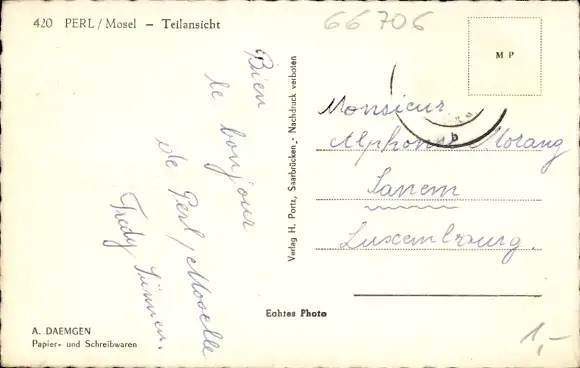 420 PERL / Mosel – Teilansicht
66706
M P
Bien
le bonjour
de Perl/Moselle
Fredy
Verlag H. Portz, Saarbrücken - Nachdruck verboten
Monsieur
Alphons Morang
Sanem
Luxembourg.
Echtes Photo
A. DAEMGEN
Papier- und Schreibwaren
1,-